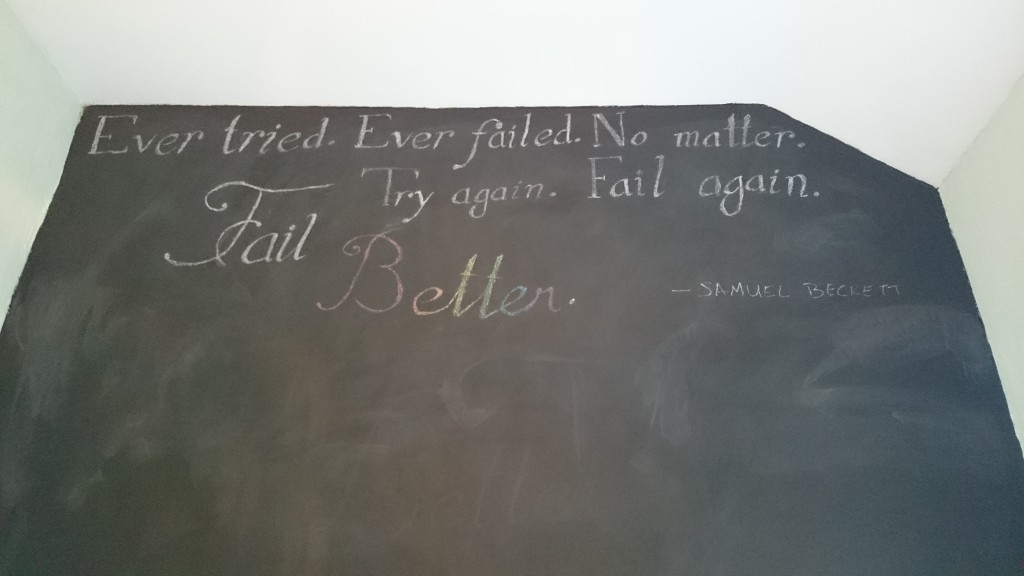 Ever tried. Ever failed. No matter.
Try again. Fail again.
Fail
Better.
- SAMUEL BECKETT